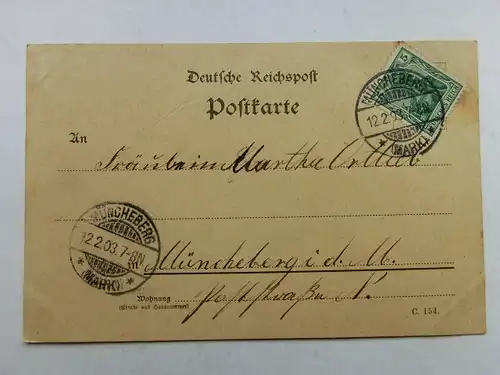 Deutsche Reichspost
Postkarte
5
MÜNCHEBERG
12.2.03
* (MARK) *
An
Fräulein Martha
MÜNCHEBERG
12.2.03. 7-8N.
* (MARK) *
in Müncheberg i. d. M.
Wohnung
(Straße und Hausnummer)
Poststraße
C. 154.